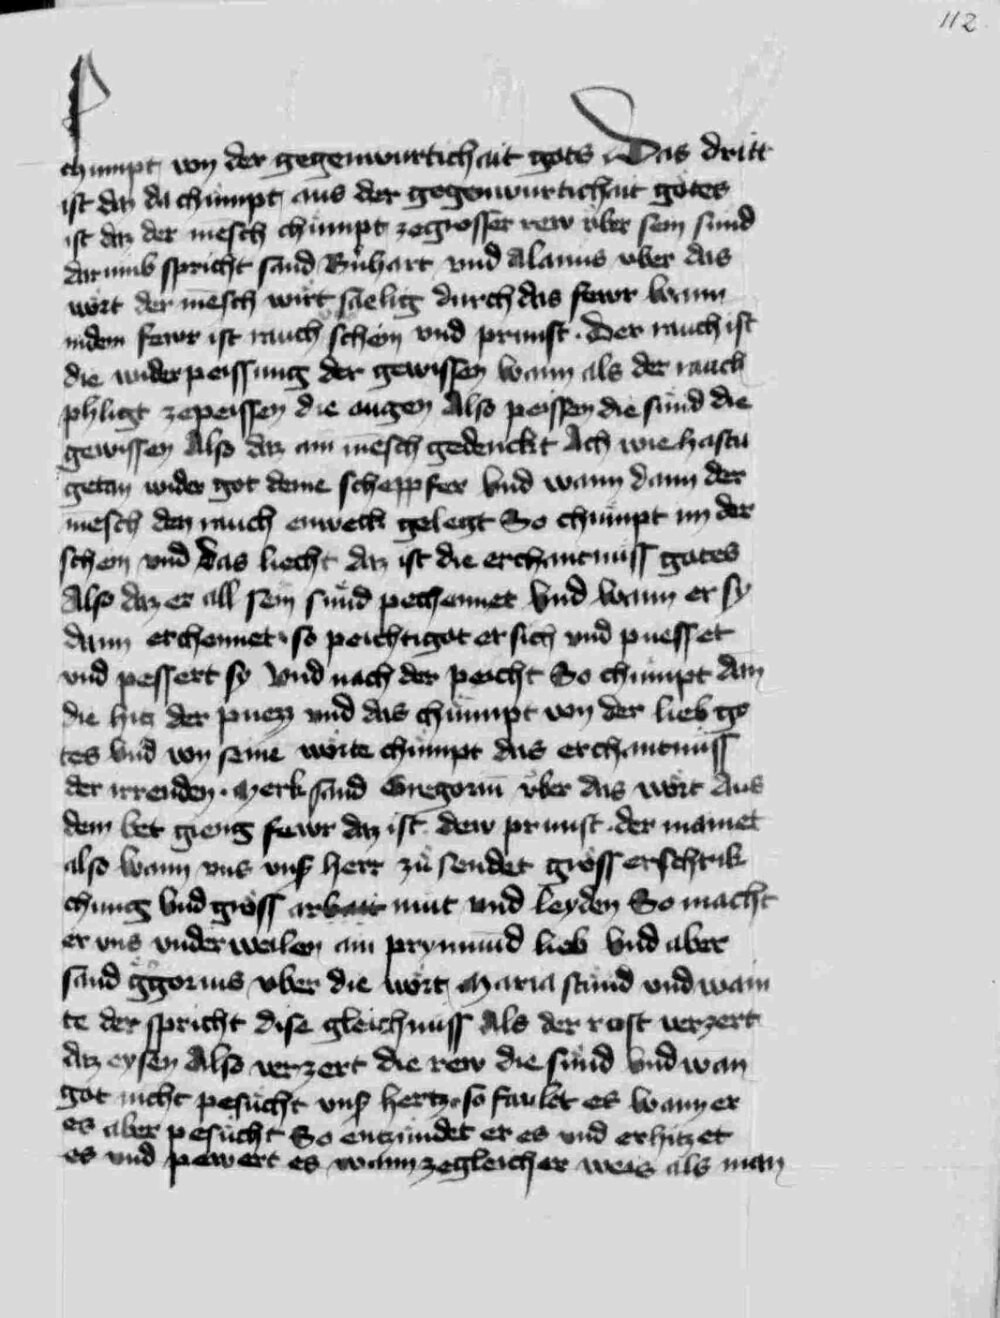 112
chumpt von der gegenwurtichait gots Das dritt
ist daz da chumpt aus der gegenwurtichait gotes
ist daz der mensch chumpt ze grosser rew vber sein sund
darumb spricht sand und Alanus vber das
wort der mensch wirt saelig durch das fewr wann
in dem fewr ist rauch schein und prunst. Der rauch ist
die widerpeissung der gewissen wann als der rauch
phligt zepeissen die augen Also peissen die sund die
gewissen Also daz ain mensch gedenckt Ach wie hastu
getan wider got deine scheppfer Vnd wann dann der
mensch den rauch enweck gelegt So chumpt im der
schein vnd das liecht daz ist die erchantnuss gotes
Also daz er all sein sund pechennet Vnd wann er sy
dann erchennet so peichtigot er sich vnd puesset
vnd pessert sy Vnd nach der peicht So chumpt dan
die hitz der puezz vnd das chumpt von der lieb go
tes Vnd von seine worte chumpt das erchantnuss
der irrenden. Merk sand Gregorium vber das wort Aus
dem bet gieng fewr daz ist dew prunst der mainet
also wann vns vnser herr zu sendet gross erschrik
chung Vnd gross arbait mut vnd leyden So macht
er vns vnderweilen ain prynnund lieb Vnd aber
sand ggorius vber die wort Maria stund vnd wain
te der spricht dise gleichnuss Als der rost verzert
daz eysen Also verzert die rew die sund Vnd wan
got nicht pesucht vnser hertz so faulet es wann er
es aber pesucht So entzundet er es vnd erhitzet
es vnd pewert es wann zegleicher weis als man